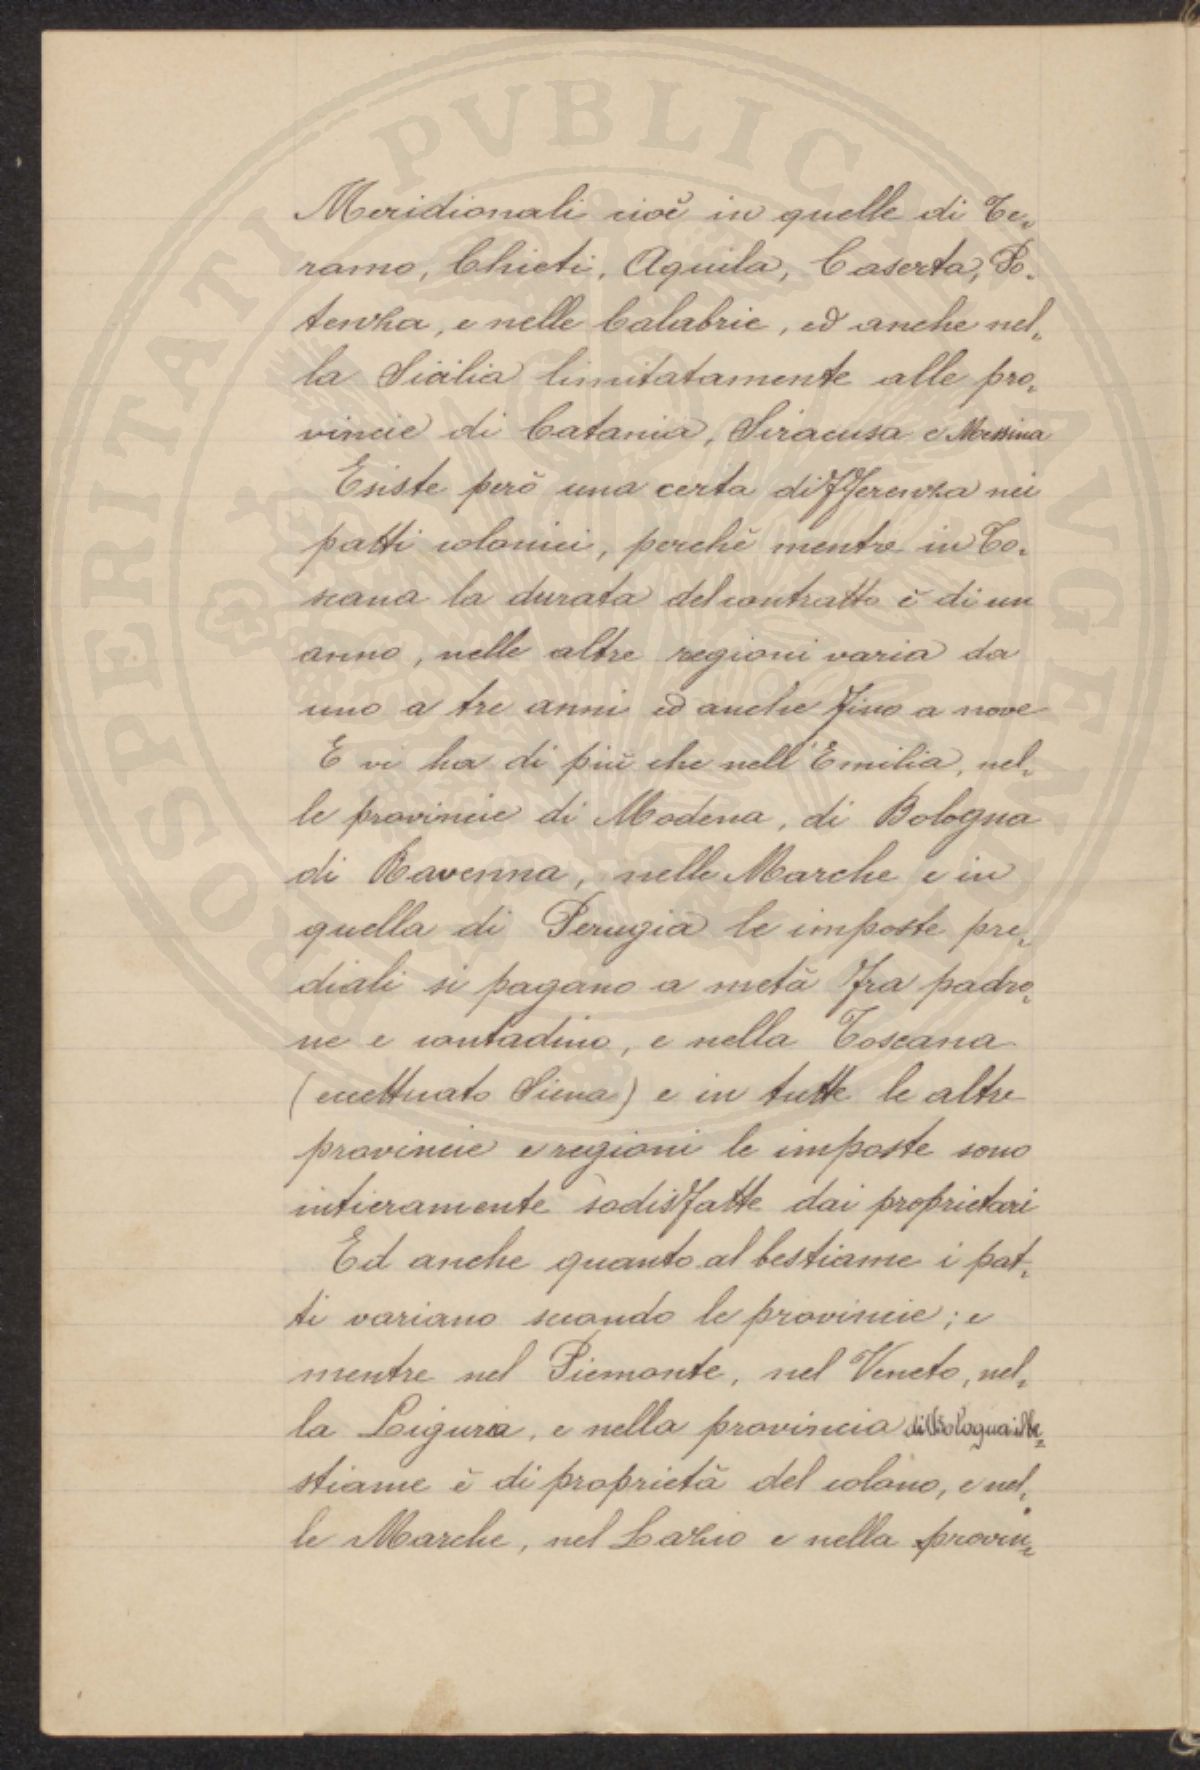 Meridionali cioè in quelle di Te„
ramo, Chieti, Aquila, Caserta, Po„
tenza, e nelle Calabrie, ed anche nel„
la Sicilia limitatamente alle pro„
vincie di Catania, Siracusa e Messina
Esiste però una certa differenza nei
patti colonici, perchè mentre in To„
scana la durata del contratto è di un
anno, nelle altre regioni varia da
uno a tre anni ed anche fino a nove
E vi ha di più che nell'Emilia, nel„
le provincie di Modena, di Bologna
di Ravenna, nelle Marche e in
quella di Perugia le imposte pre„
diali si pagano a metà fra padro„
ne e contadino, e nella Toscana
(eccettuato Siena) e in tutte le altre
provincie e regioni le imposte sono
intieramente sodisfatte dai proprietari
Ed anche quanto al bestiame i pat„
ti variano secondo le provincie; e
mentre nel Piemonte, nel Veneto, nel„
la Liguria, e nella provincia di Bologna il be„
stiame è di proprietà del colono, e nel„
le Marche, nel Lazio e nella provin„
PROSPERITATI PVBLICAE AVGENDAE